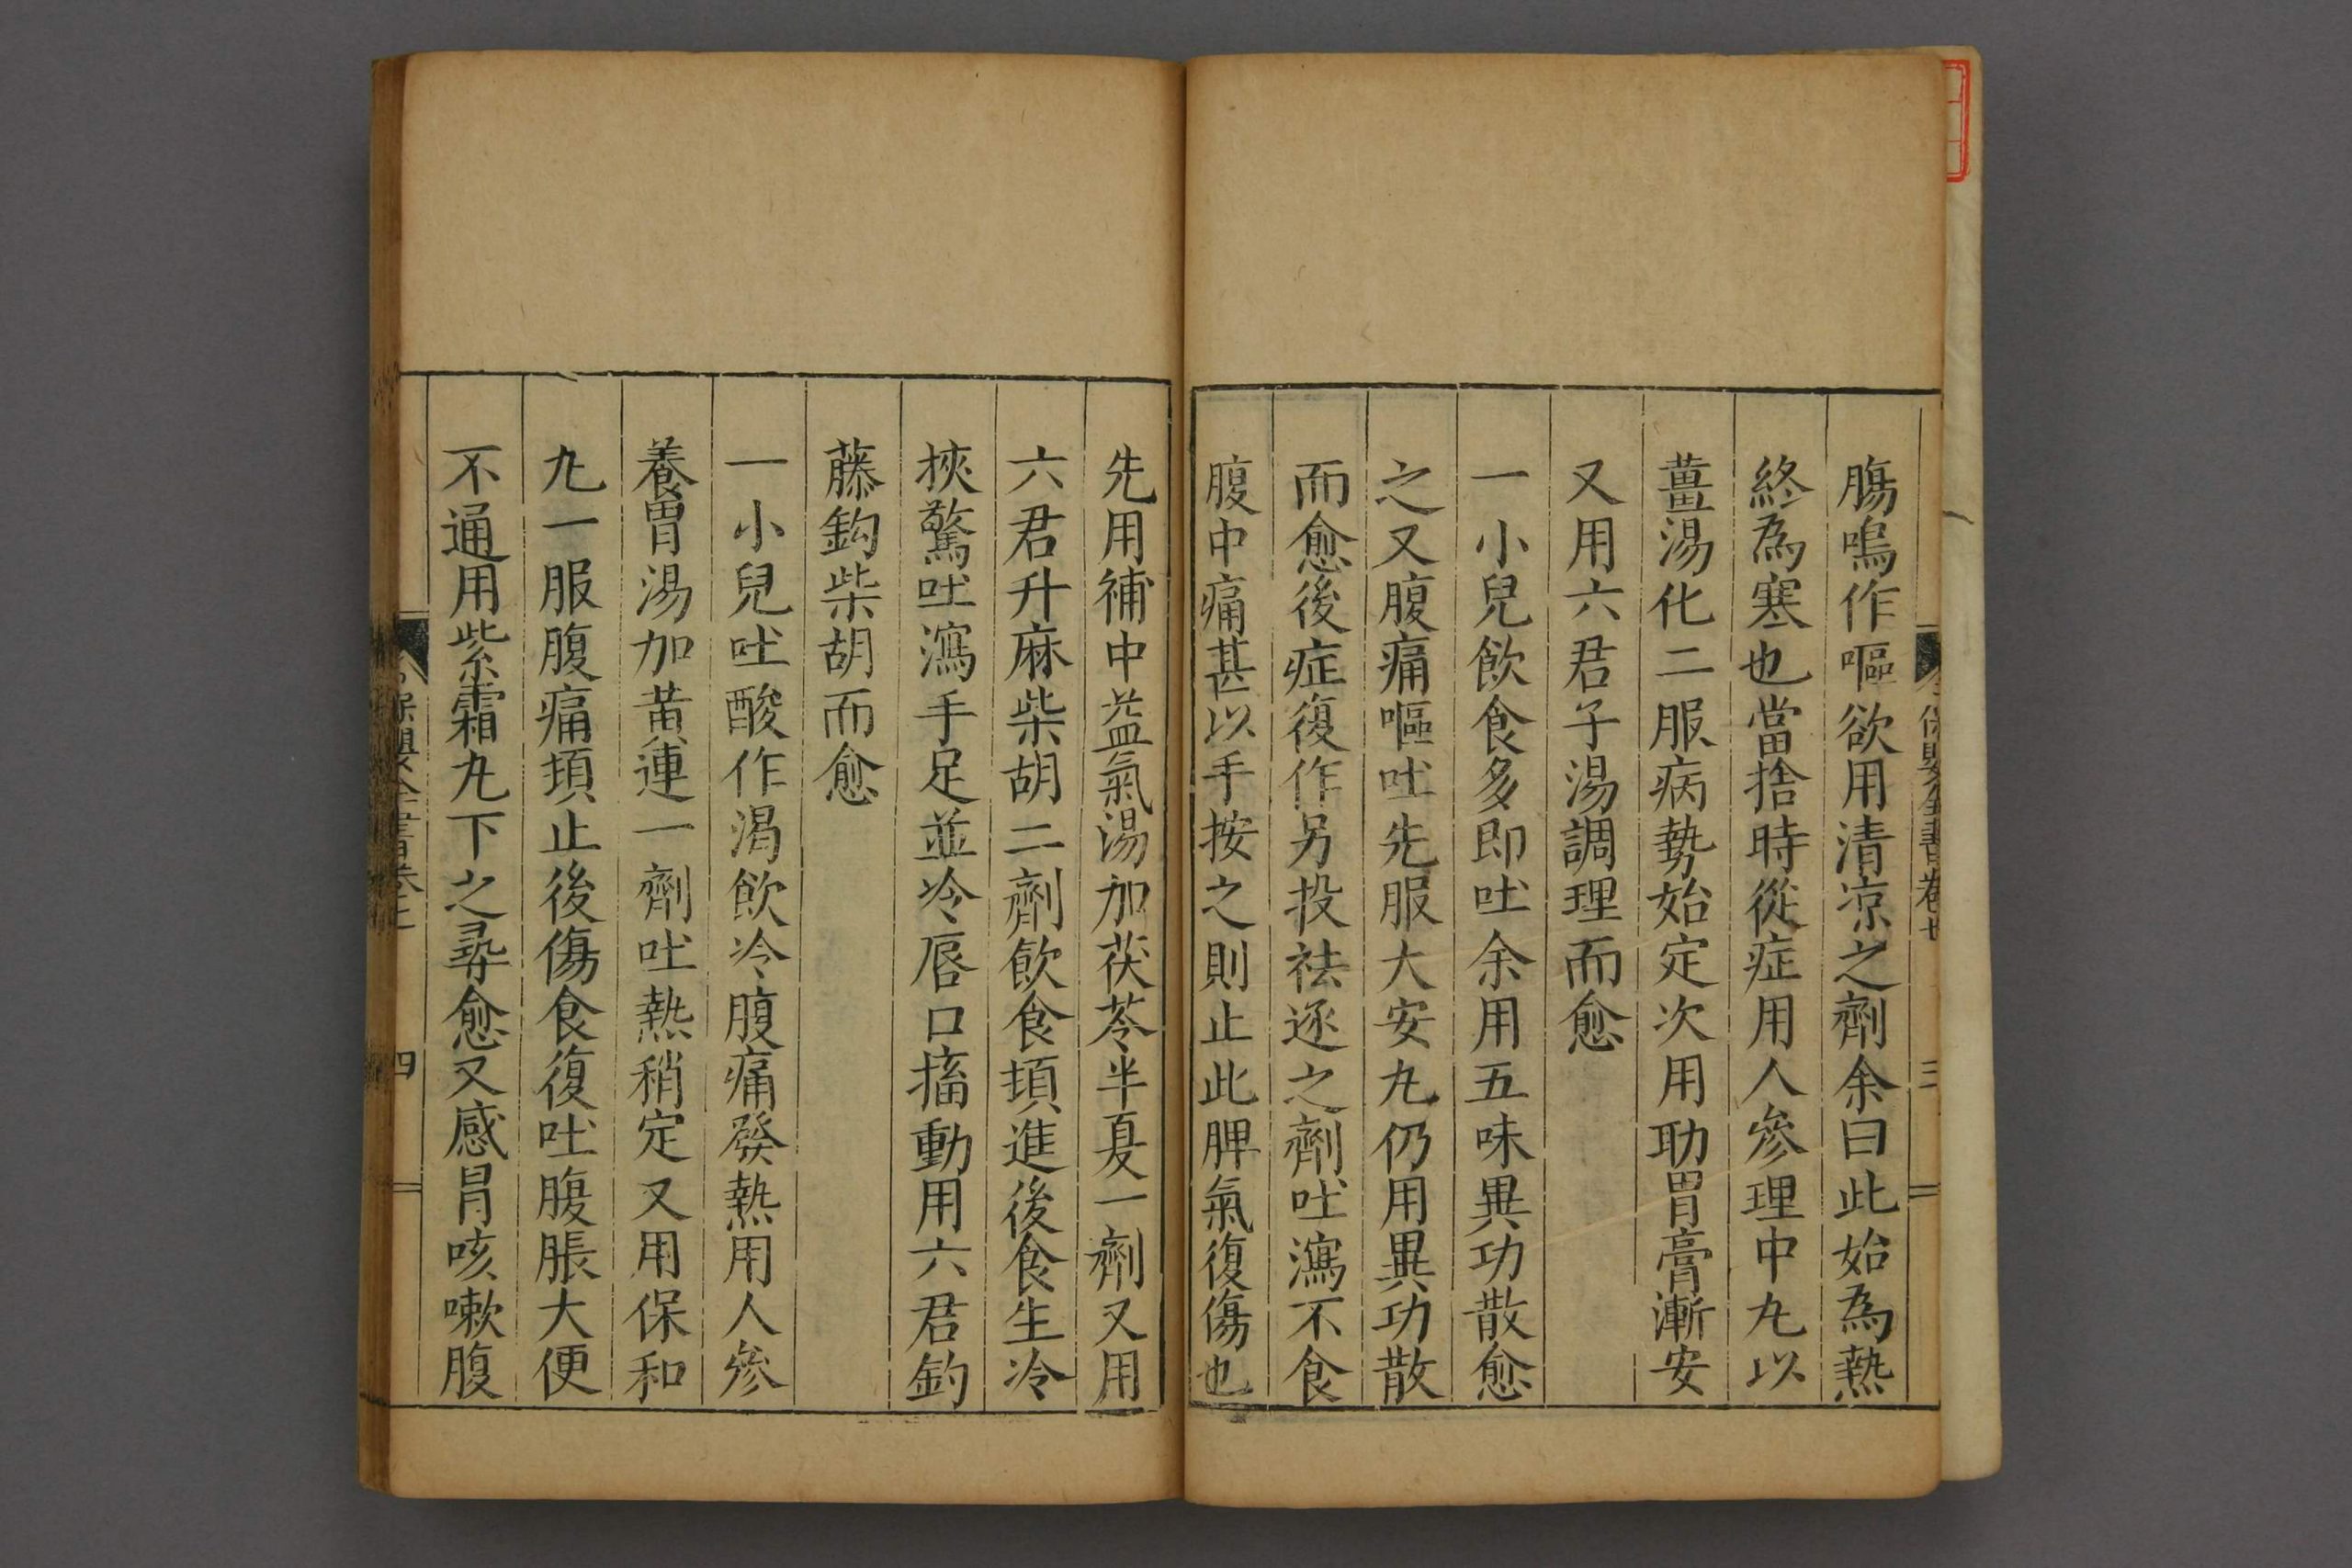 腸鳴作嘔欲用清凉之劑余曰此始為熱
終為寒也當捨時從症用人參理中丸以
薑湯化二服病勢始定次用助胃膏漸安
又用六君子湯調理而愈
一小兒飲食多即吐余用五味異功散愈
之又腹痛嘔吐先服大安丸仍用異功散
而愈後症復作另投祛逐之劑吐瀉不食
腹中痛甚以手按之則止此脾氣復傷也
先用補中益氣湯加茯苓半夏一劑又用
六君升麻柴胡二劑飲食頃進後食生冷
挾驚吐瀉手足並冷唇口搐動用六君釣
藤鈎柴胡而愈
一小兒吐酸作渴飲冷腹痛發熱用人參
養胃湯加黃連一劑吐熱稍定又用保和
丸一服腹痛頃止後傷食復吐腹脹大便
不通用紫霜丸下之尋愈又感冐咳嗽腹
保嬰全書卷七
四